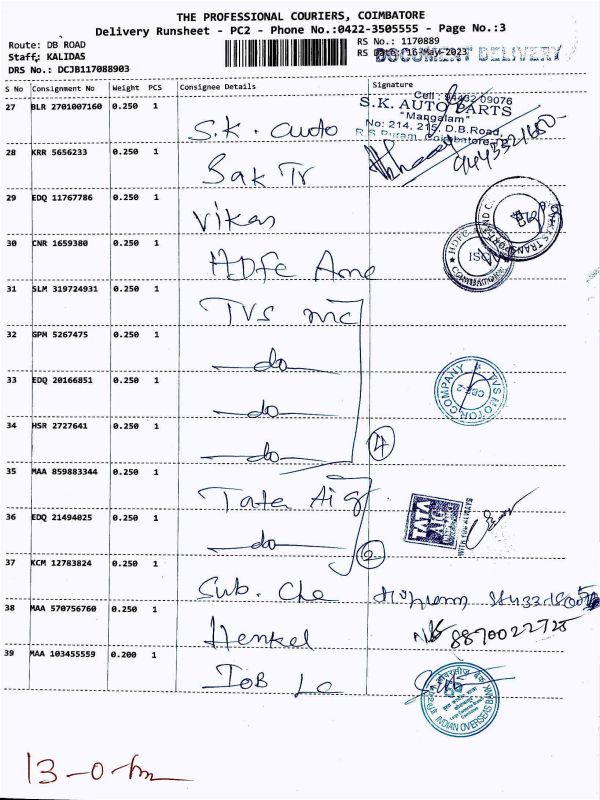 THE PROFESSIONAL COURIERS, COIMBATORE
Delivery Runsheet - PC2 - Phone No.:0422-3505555 - Page No.:3
Route: DB ROAD
RS No.: 1170889
Staff: KALIDAS
RS Date: 16-May-2023
DOCUMENT DELIVERY
DRS No.: DCJB117088903
S No Consignment No Weight PCS Consignee Details Signature
27 BLR 2701007160 0.250 1 S.K. auto
Cell: 94432 09076
S.K. AUTO PARTS
"Mangalam"
No: 214, 215, D.B.Road,
R.S.Puram, Coimbatore
28 KRR 5656233 0.250 1 Bak Tr
29 EDQ 11767786 0.250 1 Vikas
30 CNR 1659380 0.250 1 HDFC Ame
31 SLM 319724931 0.250 1 TVS mc
32 GPM 5267475 0.250 1 do
33 EDQ 20166851 0.250 1 do
TVS MOTOR COMPANY
34 HSR 2727641 0.250 1 do 4
35 MAA 859883344 0.250 1 Tata Aig
TATA
WITH YOU ALWAYS
36 EDQ 21494025 0.250 1 do 2
37 KCM 12783824 0.250 1 Sub. Che
38 MAA 570756760 0.250 1 Henkel 8870022725
39 MAA 103455559 0.200 1 IOB Lo
INDIAN OVERSEAS BANK